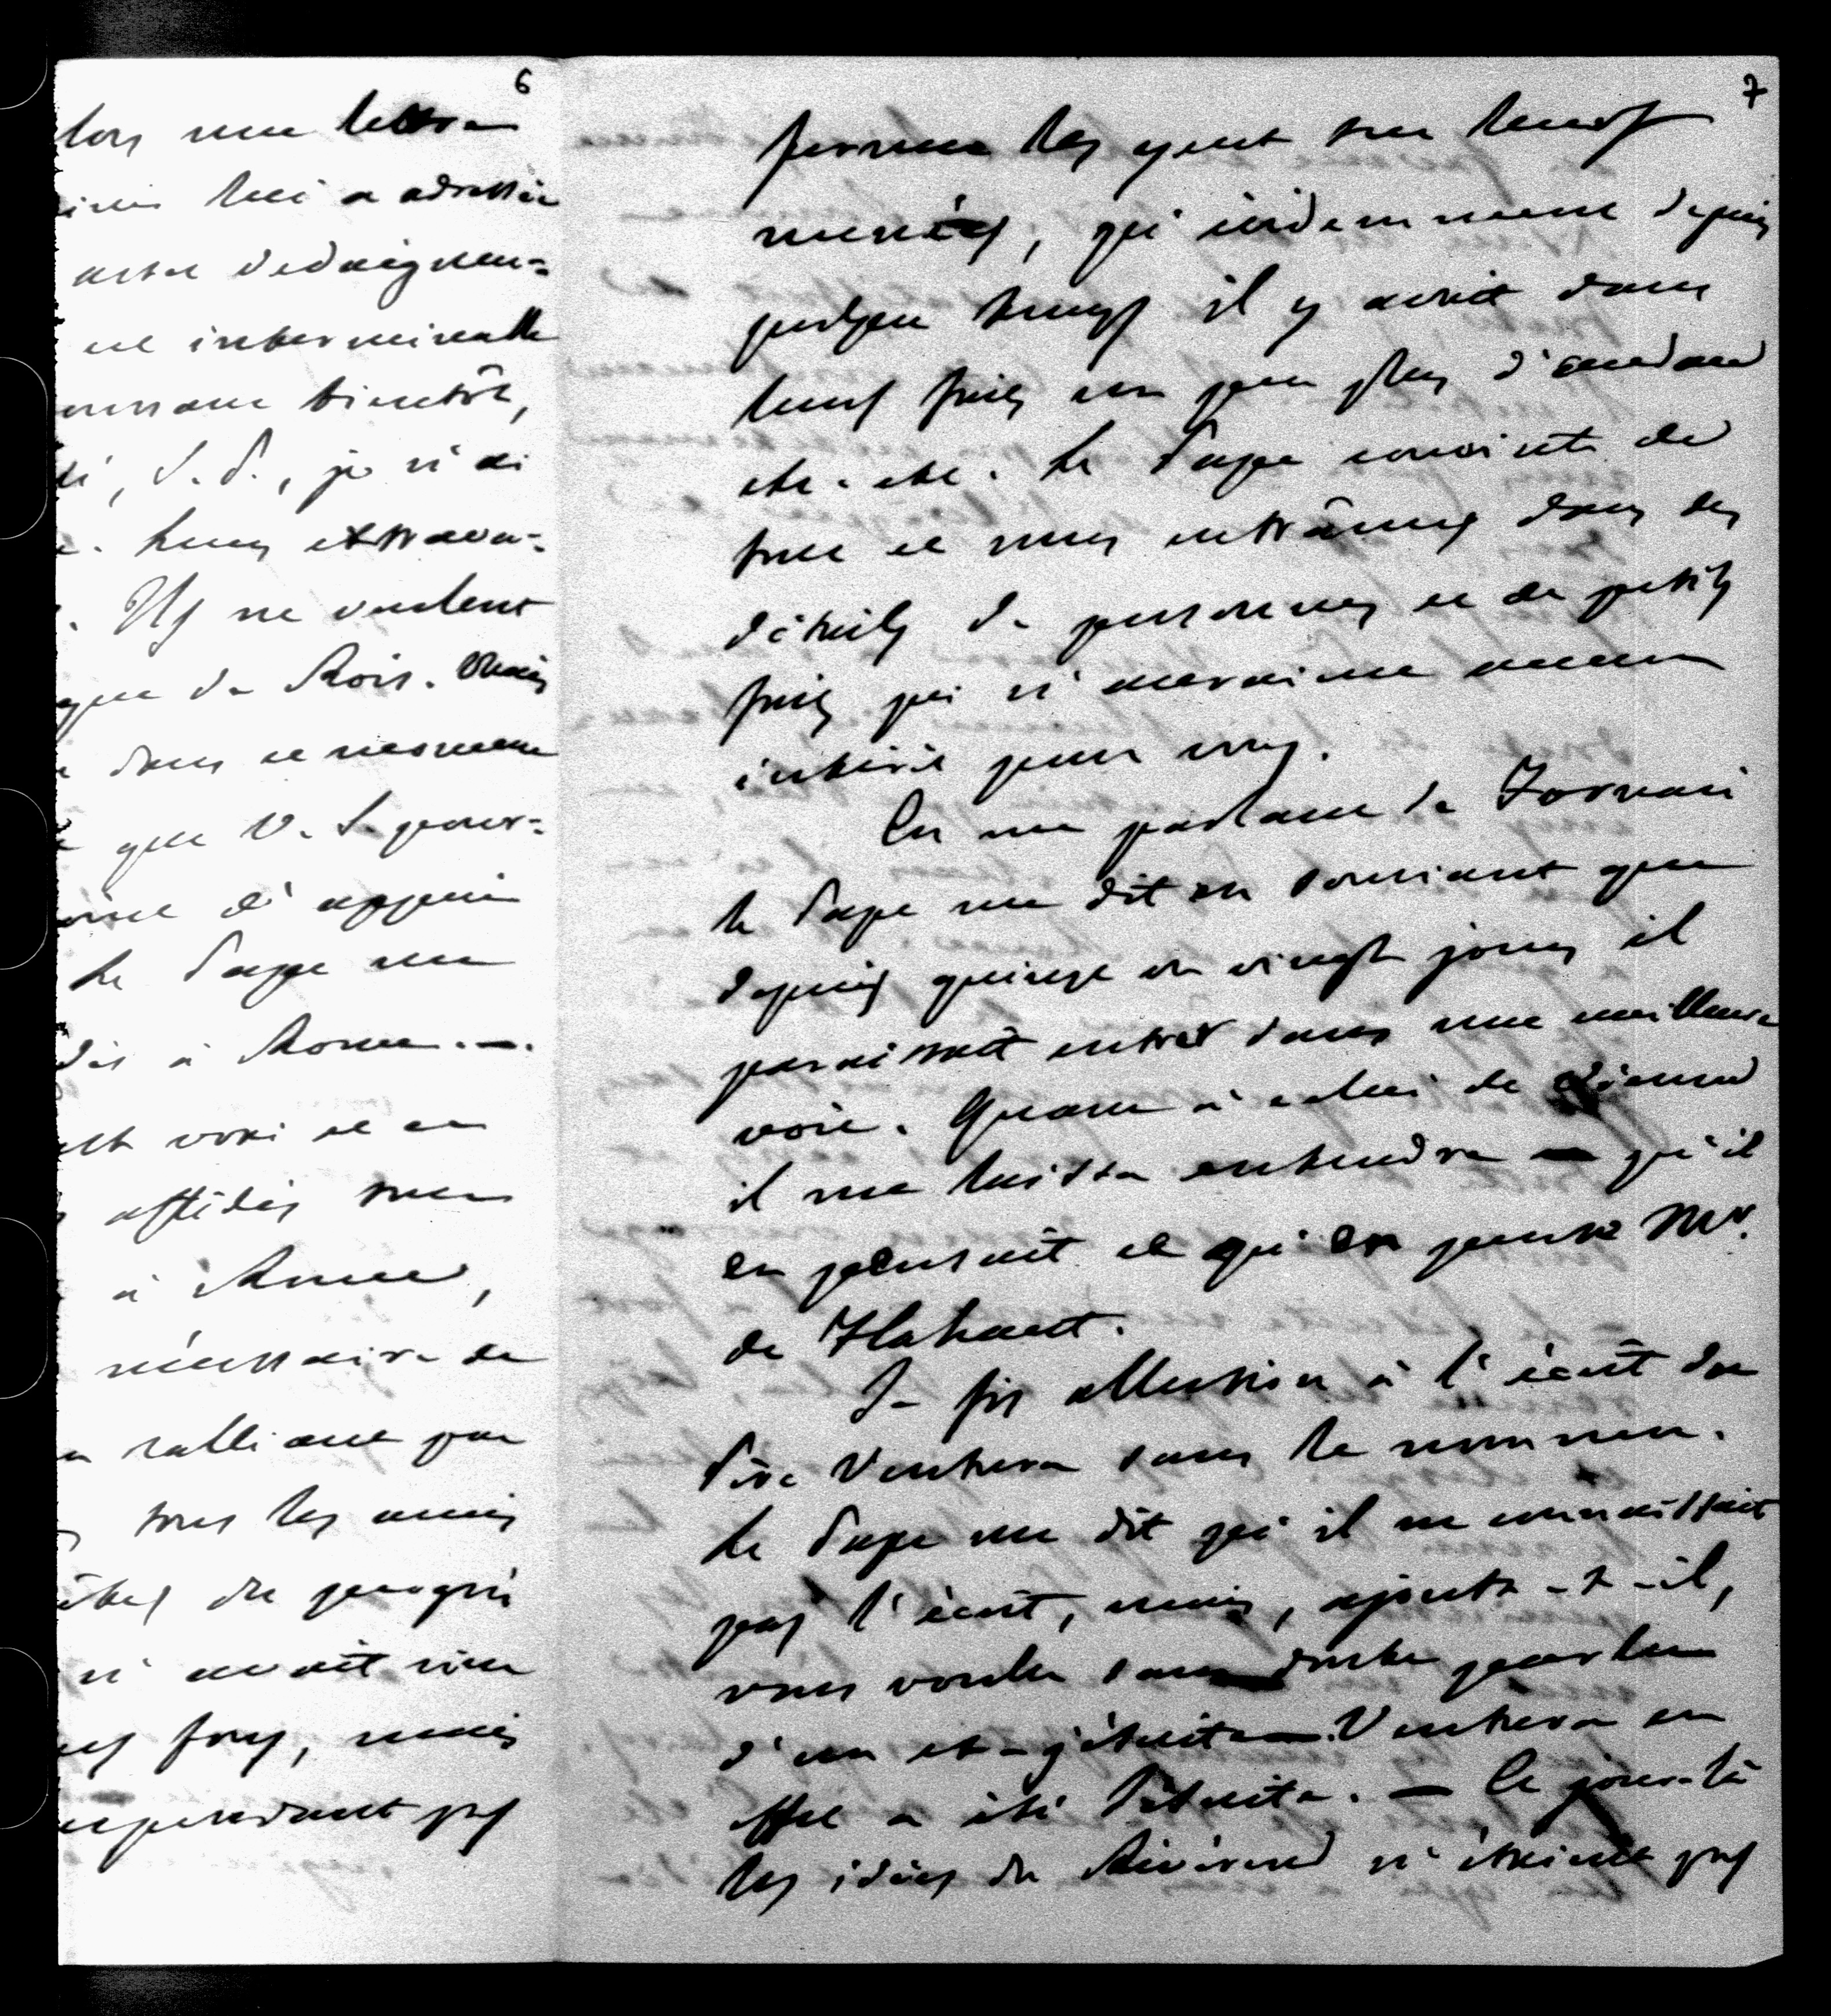 6
lors une lettre
lui a adressée
dedaigneu-
et interminable
bientôt,
S. P., je n'ai
leurs extrava-
Ils ne veulent
que de Rois. Mais
dans ce moment
que V. S. pour-
d'appui
Le Pape me
à Rome. —.
est vrai et
affidés sur
à Rome,
nécessaire de
ralliant par
tous les amis
du progrès
n'avait rien
fois, mais
cependant pas
7
fermer les yeux sur leurs
menées, qui évidemment depuis
quelque temps il y avait dans
leurs faits un peu plus d'audace
etc. etc. Le Pape convint de
tout et nous entrâmes dans des
détails de personnes et de petits
faits qui n'auraient aucun
intérêt pour vous.
En me parlant de Fornari
le Pape me dit en souriant que
depuis quinze ou vingt jours il
paraissait entrer dans une meilleure
voie. Quant à celui de Vienne
il me laissa entendre — qu'il
en pensait ce qu'en pense Mr.
de Flahaut.
Je fis allusion à l'écrit du
Père Ventura sans le nommer.
Le Pape me dit qu'il ne connaissait
pas l'écrit, mais, ajouta-t-il,
vous voulez sans doute parler
d'un ex-jésuite — Ventura en
effet a été Jésuite. — Ce jour-là
les idées du Révérend n'étaient pas